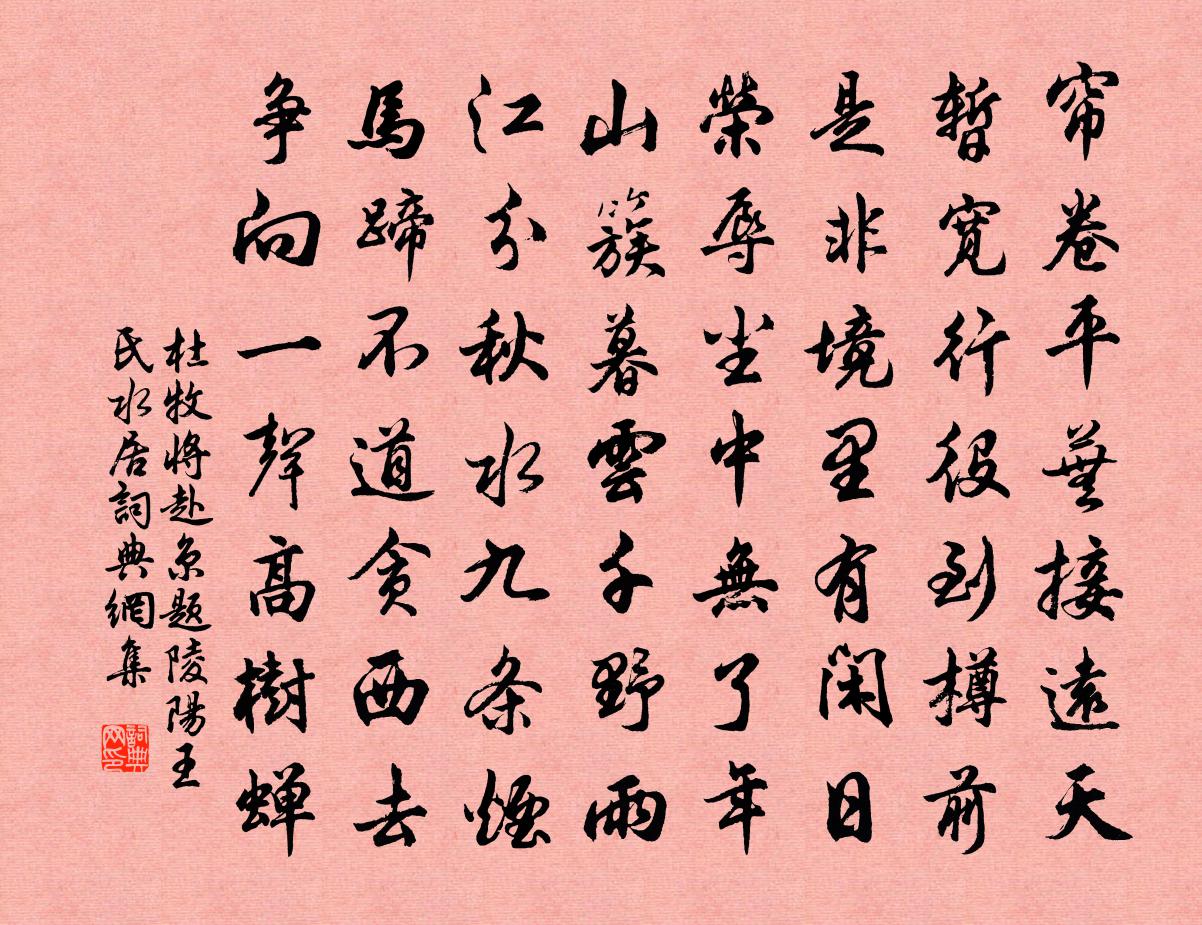 帘卷平蕪接遠天
暫寬行役到樽前
是非境里有閑日
榮辱塵中無了年
山簇暮雲千野雨
江分秋水九条煙
馬蹄不道貪西去
争向一聲高樹蝉
杜牧將赴京題陵陽王
氏水居詞典網集
詞典网印